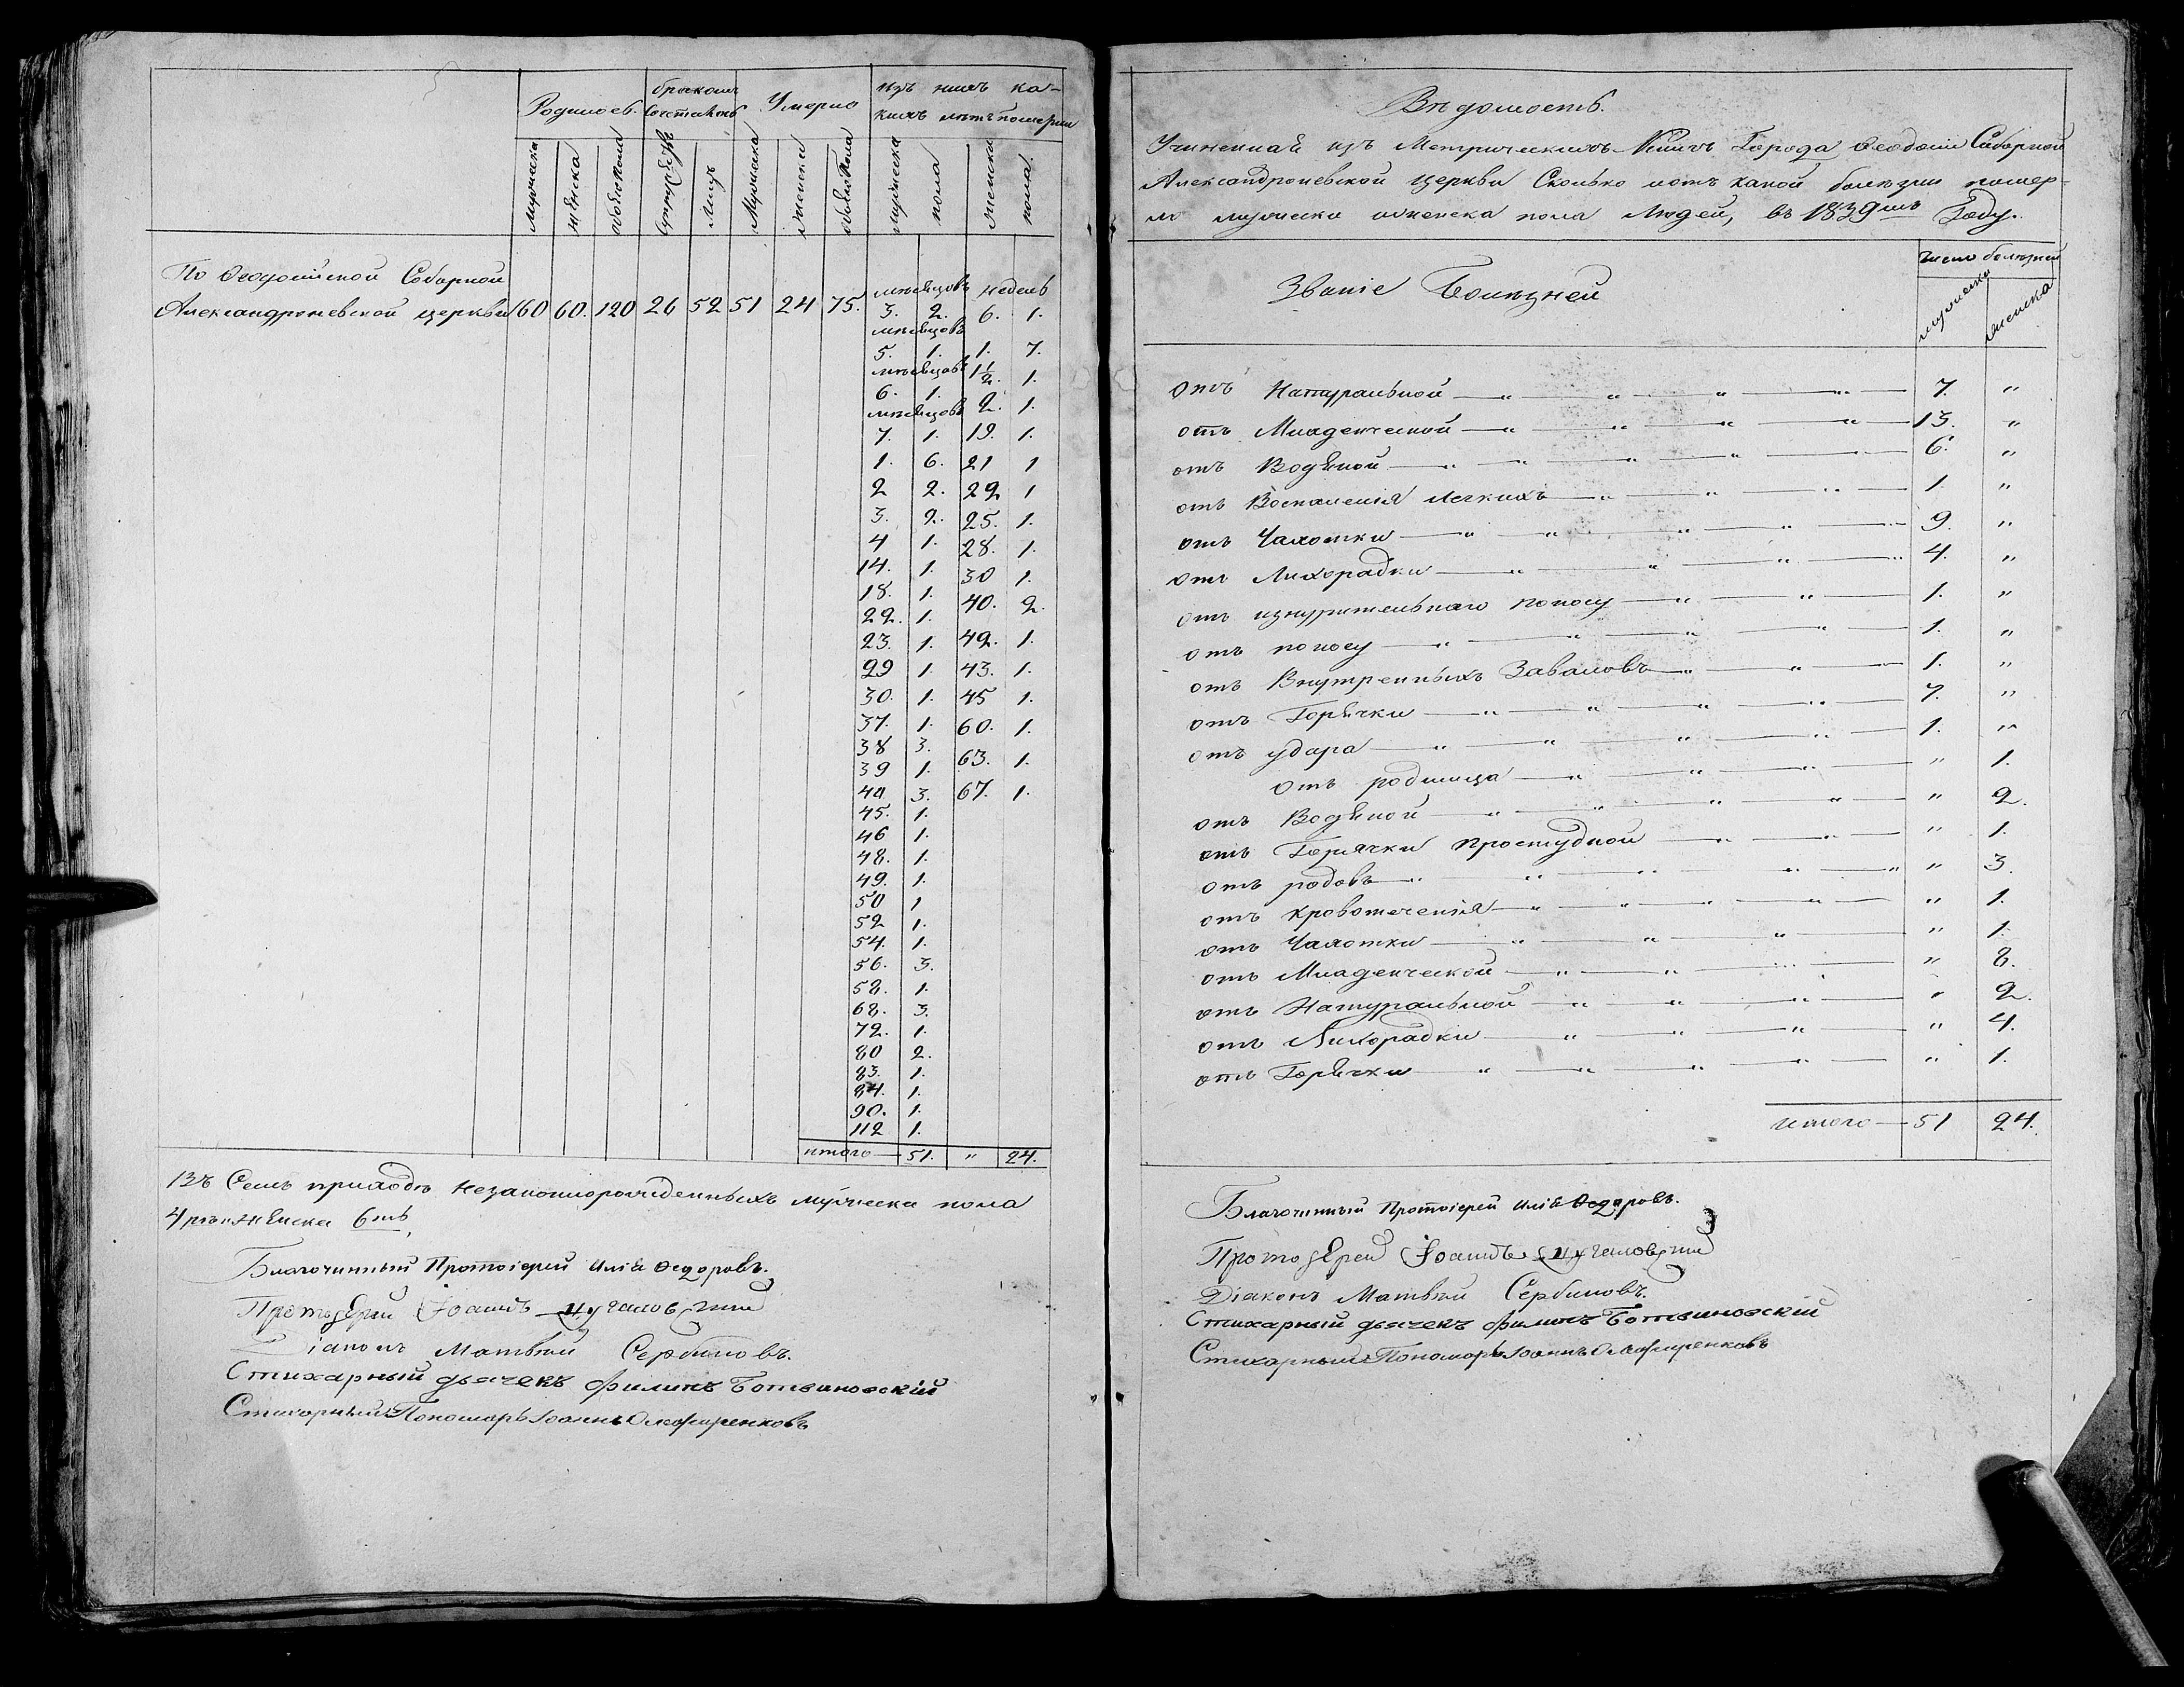 Родилось. бракомъ Сочеталось Умерло изъ нихъ ка-
кихъ лѣтъ померли
мужеска женска обоего пола супружествъ лицъ Мужеска женска обоего пола мужеска пола женска пола
По Ѳеодосійской Соборной
Александроневской церкви 60 60. 120 26 52 51 24 75.
мѣсяцовъ недель
3. 2. 6. 1.
мѣсяцовъ
5. 1. 1. 7.
мѣсяцовъ 1½. 1.
6. 1.
мѣсяцовъ 2. 1.
7. 1. 19. 1.
1. 6. 21 1
2 2. 22 1
3. 2. 25. 1.
4 1. 28. 1.
14. 1. 30 1.
18. 1. 40. 2.
22. 1.
23. 1. 42. 1.
29 1. 43. 1.
30. 1. 45 1.
37. 1. 60. 1.
38 3.
39 1. 63. 1.
40 3. 67. 1.
45. 1.
46 1.
48. 1.
49. 1.
50 1
52 1.
54. 1.
56. 3.
58. 1.
68. 3.
72. 1.
80 2.
83. 1.
84. 1.
90. 1.
112 1.
итого 51. " 24.
Въ Семъ приходѣ незаконнорожденныхъ мужеска пола
4 ре женска 6ть,
Благочинный Протоіерей Илія Ѳедоровъ.
Протоіерей Іоаннъ
Діаконъ Матвѣй Сербиновъ.
Стихарный дьячекъ Филипъ Ботвиновскій
Стихарный Пономарь Іоаннъ
Вѣдомость.
Учиненная изъ Метрическихъ Книгъ Города Ѳеодосіи Соборной
Александроневской церкви Сколько и отъ какой болѣзни помер-
ло мужеска и женска пола людей, въ 1839мъ Году.
Званіе Болѣзней
Число болѣзней
мужеска женска
отъ Натуральной 7. "
отъ Младенческой 13. "
отъ Водяной 6. "
отъ Воспаленія легкихъ 1. "
отъ Чахотки 9. "
отъ Лихорадки 4. "
отъ изнурительнаго поносу 1. "
отъ поносу 1. "
отъ Внутренныхъ Заваловъ 1. "
отъ Горячки 7. "
отъ удара 1. "
отъ родимца " 1.
отъ Водяной " 2.
отъ Горячки простудной " 1.
отъ родовъ " 3.
отъ кровотеченія " 1.
отъ Чахотки " 1.
отъ Младенческой " 8.
отъ Натуральной " 2.
отъ Лихорадки " 4.
отъ Горячки " 1.
итого 51 24.
Благочинный Протоіерей Илія Ѳедоровъ.
Протоіерей Іоаннъ
Діаконъ Матвѣй Сербиновъ.
Стихарный дьячекъ Филипъ Ботвиновскій
Стихарный Пономарь Іоаннъ